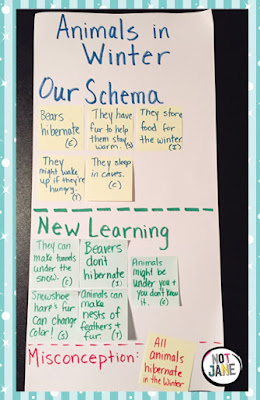 Animals in
Winter
Our Schema
Bears
hibernate
(C)
They have
fur to help
them stay
warm. (S)
They store
food for
the winter.
(I)
They
might wake
up if they're
hungry.
(T)
They sleep
in caves.
(C)
New Learning
They can
make tunnels
under the
snow. (C)
Beavers
don't
hibernate
(I)
Animals
might be
under you +
you don't know
it. (E)
Snowshoe
hare's fur
can change
color! (S)
Animals can
make
nests of
feathers +
fur. (T)
Misconception:
All
animals
hibernate
in the winter
NOT
JANE